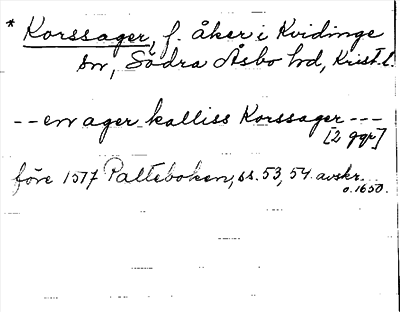 * Korssager, f. åker i Kvidinge
sn, Södra Åsbo hd, Krist. l.
-- en ager kalliss Korssager ---
[2 ggr]
före 1517 Palteboken, ss. 53, 54. avskr.
o. 1650.